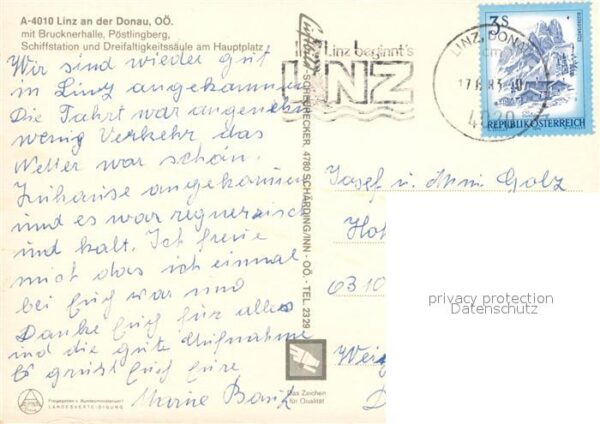 A-4010 Linz an der Donau, OÖ.
mit Brucknerhalle, Pöstlingberg,
Schiffstation und Dreifaltigkeitssäule am Hauptplatz
Wir sind wieder gut
in Linz angekommen
Die Fahrt war angenehm
wenig Verkehr das
Wetter war schön.
Zuhause angekommen
und es war regnerisch
und kalt. Ich freue
mich das ich einmal
bei Euch war und
Danke Euch für alles
und die gute Aufnahme
Es grüßt Euch Eure
SCHÄRDING/INN - OÖ. - TEL. 2329
4780
Linz beginnt's
LINZ
LINZ, DONAU
17.8.83-20
4020
3 S
REPUBLIK ÖSTERREICH
Josef u. Golz
6310
privacy protection
Datenschutz
Das Zeichen
für Qualität
LANDESVERTEIDIGUNG